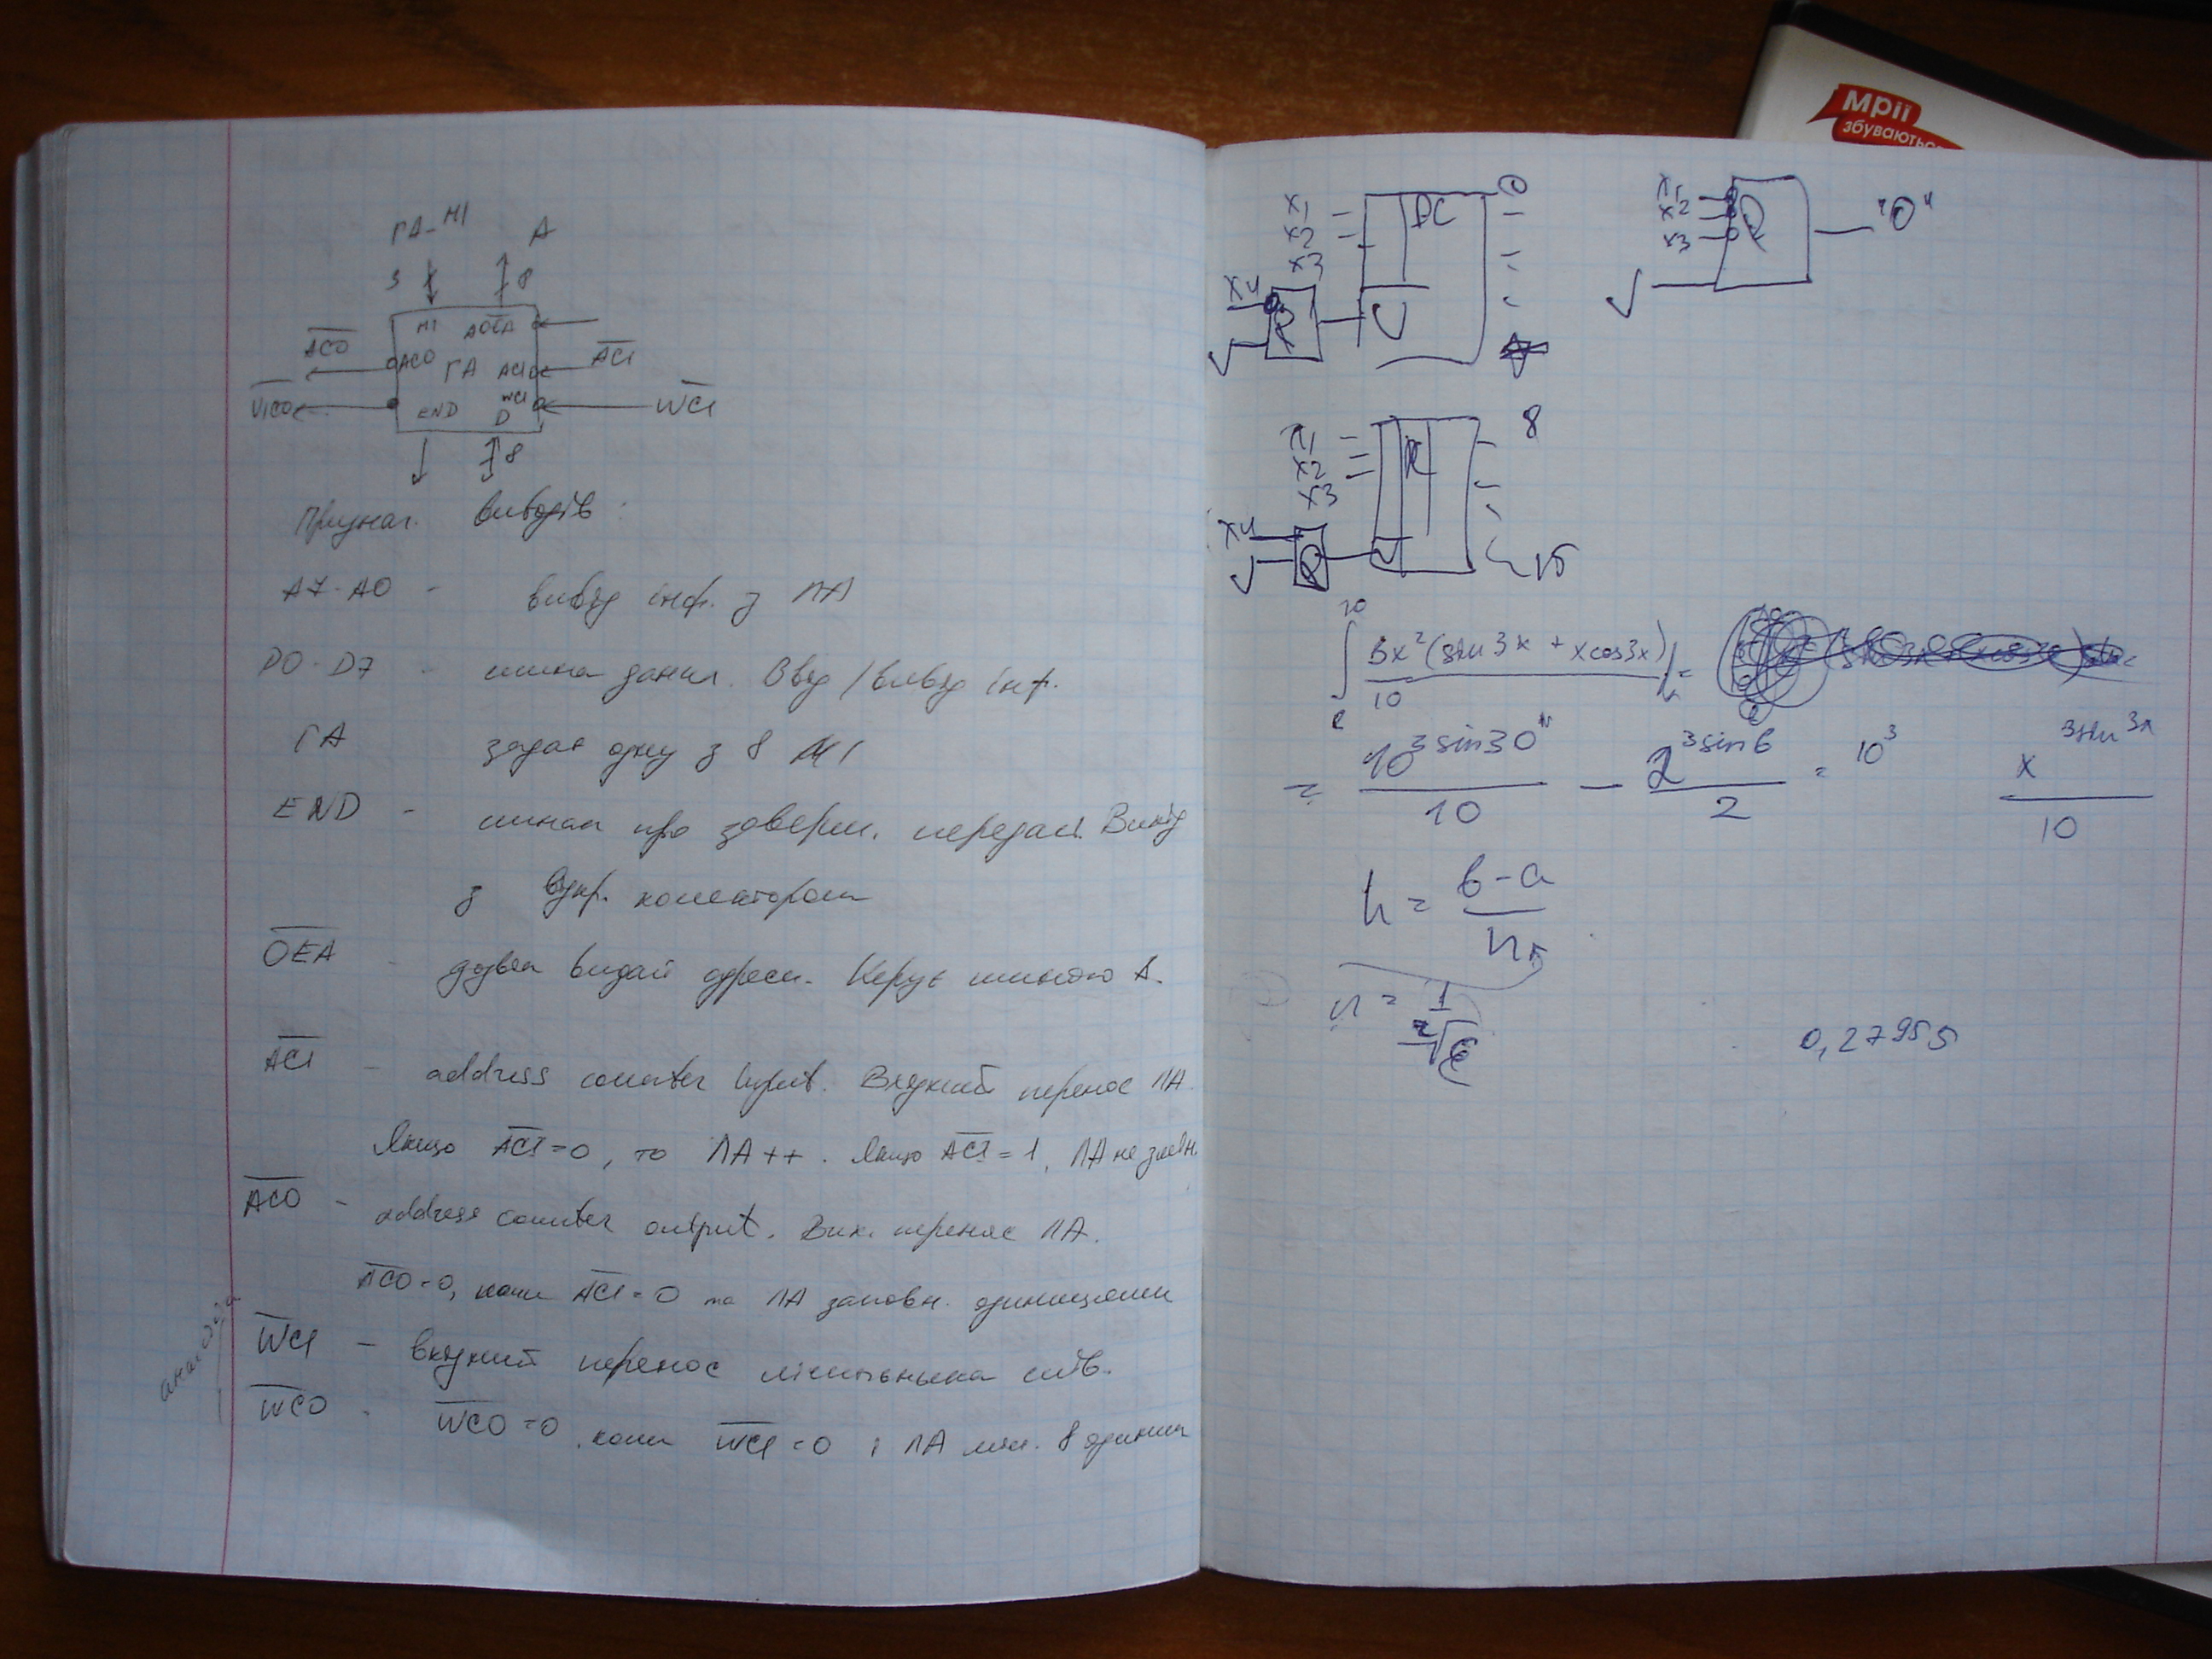 ГА - МІ
A
3
8
МІ
AOEA
ACO
ACO
ГА
ACI
ACI
END
WCI
D
WCI
8
Признач. виводів:
A7-A0 - вивід інф. з ЛА
D0-D7 - шина даних. Ввід/вивід інф.
ГА задає одну з 8 МІ
END - про заверш. передачі. Вихід
з колектором
OEA - дозвіл видачі адреси. Керує шиною А.
ACI - address counter input. Вхідний перенос ЛА.
Якщо ACI=0, то ЛА++. Якщо ACI=1, ЛА не змін.
ACO - address counter output. Вих. перенос ЛА.
ACO=0, коли ACI=0 та ЛА заповн. одиницями
WCI - вхідний перенос лічильника слів.
WCO - WCO=0, коли WCI=0 і ЛА 8 одиниц
Мрії
збуваються
x1
x2
x3
DC
0
x4
x1
x2
x3
"0"
x1
x2
x3
8
x4
15
10
3x²(sin3x + xcos3x)
10
= 10^3sin30 / 10 - 2^3sin6 / 2 = 10³
x^3sin3x / 10
h = b-a / n
n = 1
0,27955